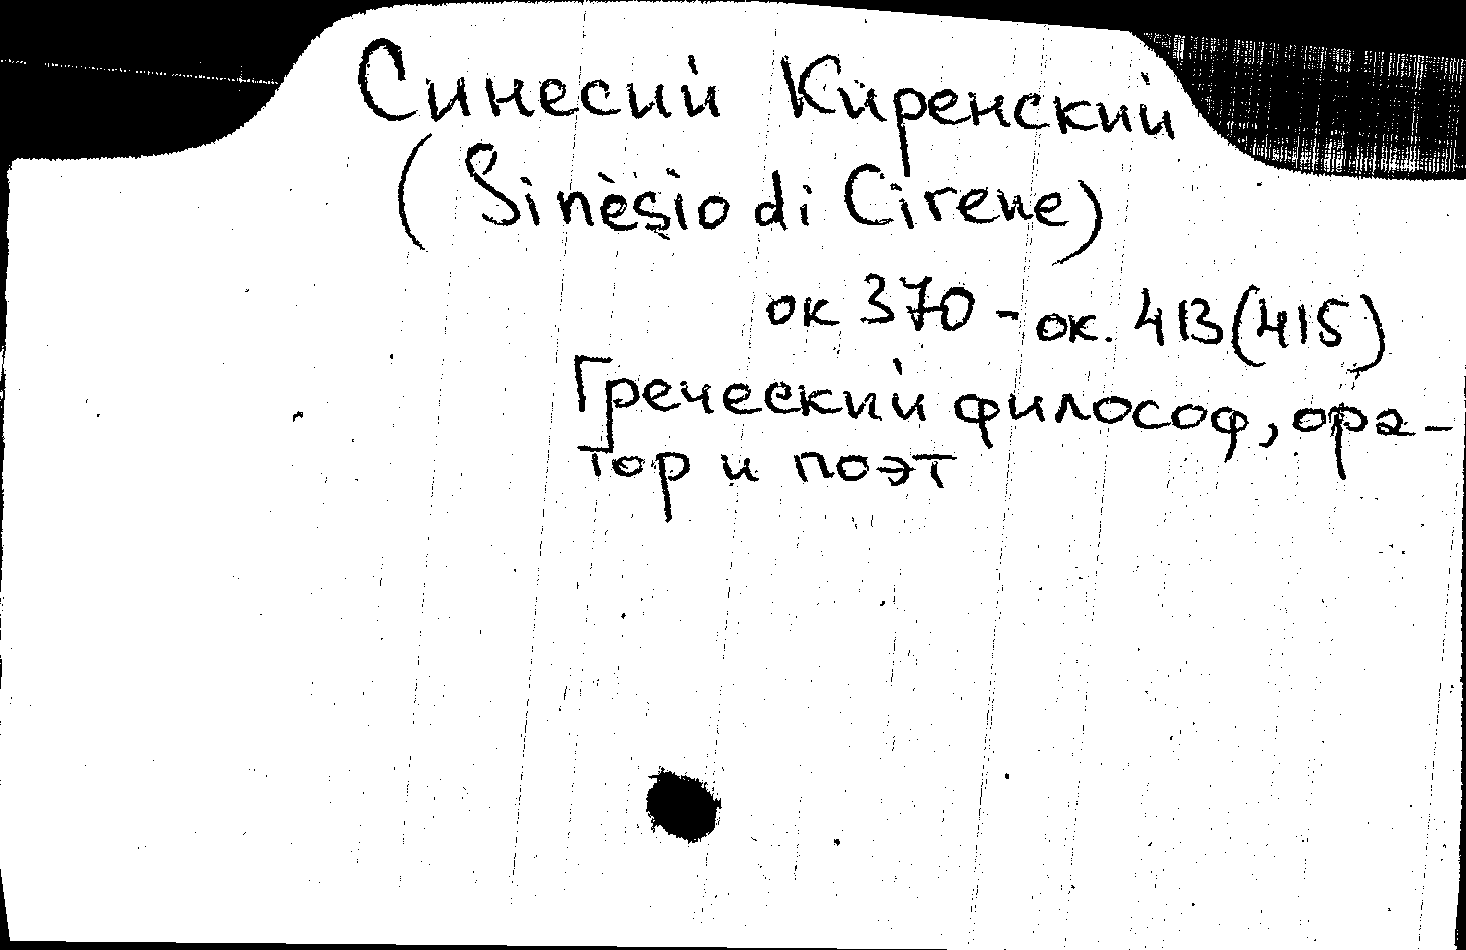 Синесий Киренский
(Sinèsio di Cirene)
ок 370 - ок. 413(415)
Греческий философ, ора-
тор и поэт